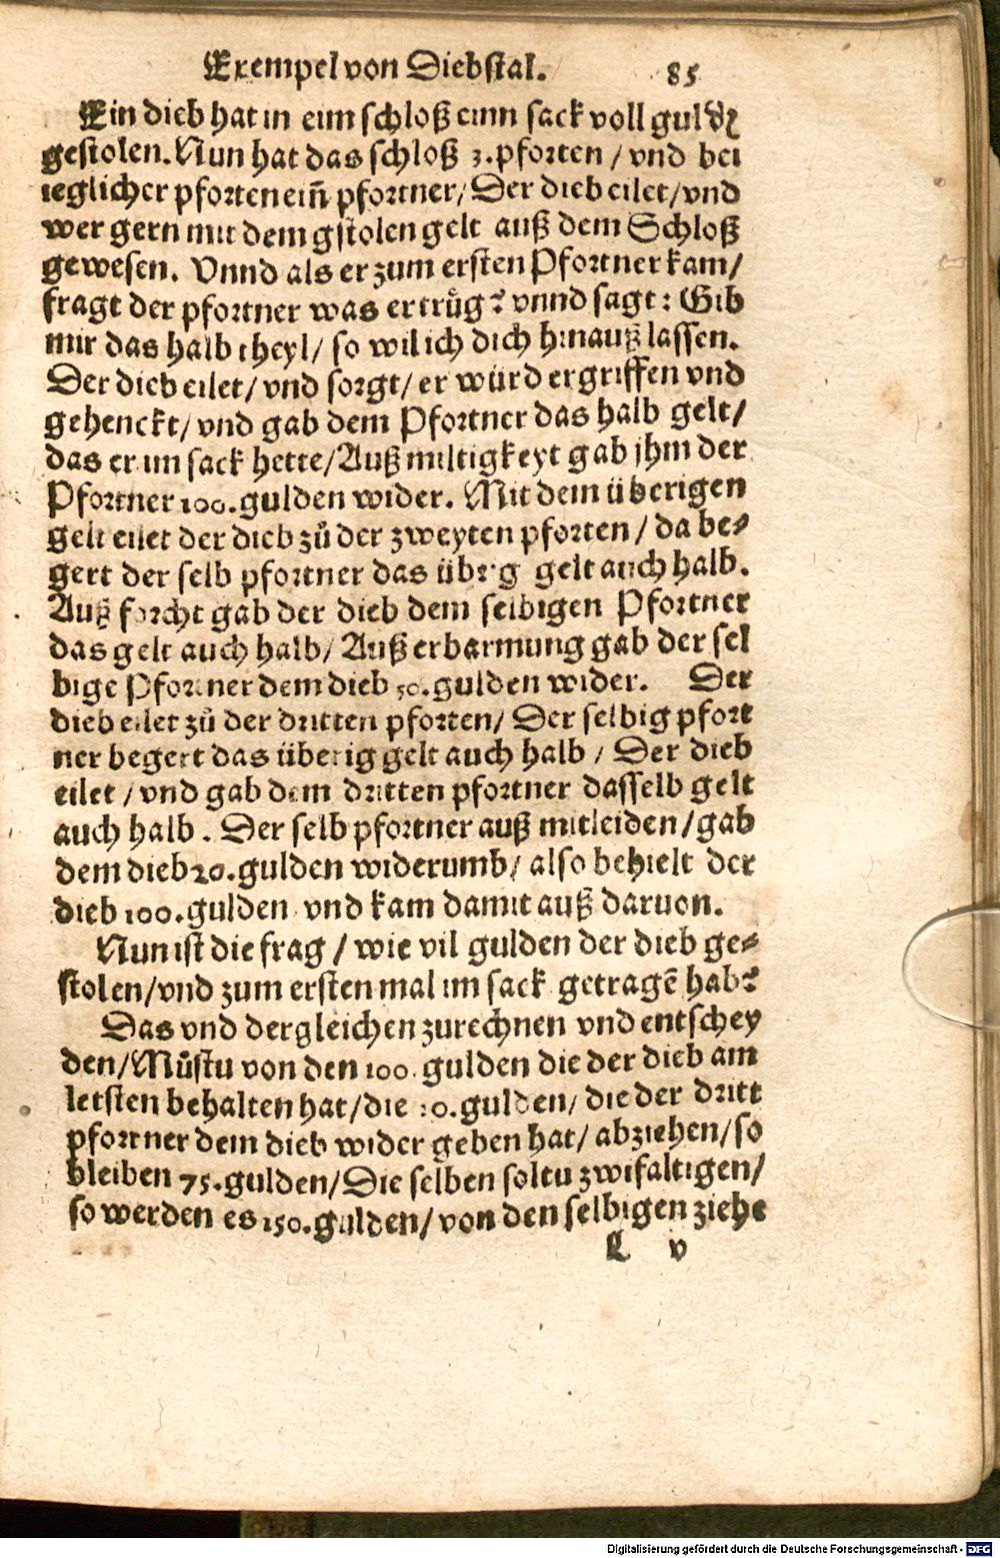 Exempel von Diebstal. 85
Ein dieb hat in eim schloß einn sack voll guldẽ
gestolen. Nun hat das schloß 3. pforten / vnd bei
ieglicher pforten eiñ pfortner / Der dieb eilet / vnd
wer gern mit dem gstolen gelt auß dem Schloß
gewesen. Vnnd als er zum ersten Pfortner kam /
fragt der pfortner was er trüg? vnnd sagt: Gib
mir das halb theyl / so wil ich dich hinauß lassen.
Der dieb eilet / vnd sorgt / er würd ergriffen vnd
gehenckt / vnd gab dem Pfortner das halb gelt /
das er im sack hette / Auß miltigkeyt gab jhm der
Pfortner 100. gulden wider. Mit dem überigen
gelt eilet der dieb zů der zweyten pforten / da be⸗
gert der selb pfortner das übrig gelt auch halb.
Auß forcht gab der dieb dem selbigen Pfortner
das gelt auch halb / Auß erbarmung gab der sel
bige Pfortner dem dieb 50. gulden wider. Der
dieb eilet zů der dritten pforten / Der selbig pfort
ner begert das überig gelt auch halb / Der dieb
eilet / vnd gab dem dritten pfortner dasselb gelt
auch halb. Der selb pfortner auß mitleiden / gab
dem dieb 20. gulden widerumb / also behielt der
dieb 100. gulden vnd kam damit auß daruon.
Nun ist die frag / wie vil gulden der dieb ge⸗
stolen / vnd zum ersten mal im sack getragẽ hab?
Das vnd dergleichen zurechnen vnd entschey
den / Můstu von den 100. gulden die der dieb am
letsten behalten hat / die 20. gulden / die der dritt
pfortner dem dieb wider geben hat / abziehen / so
bleiben 75. gulden / Die selben soltu zwifaltigen /
so werden es 150. gulden / von den selbigen ziehe
L v
Digitalisierung gefördert durch die Deutsche Forschungsgemeinschaft - DFG